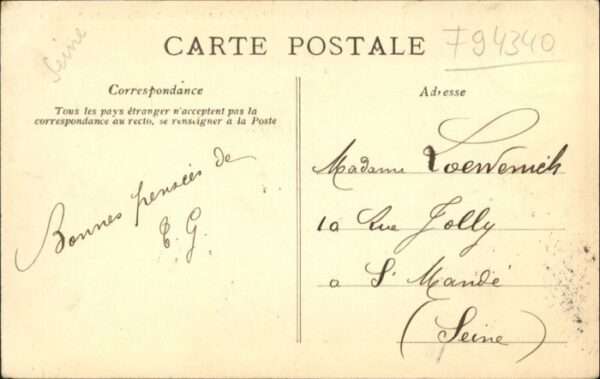 Seine
CARTE POSTALE
794340
Correspondance
Tous les pays étranger n'acceptent pas la
correspondance au recto, se renseigner a la Poste
Bonnes pensées de
G.
Adresse
Madame Loewenich
10 Rue Jolly
a St Mandé
(Seine)